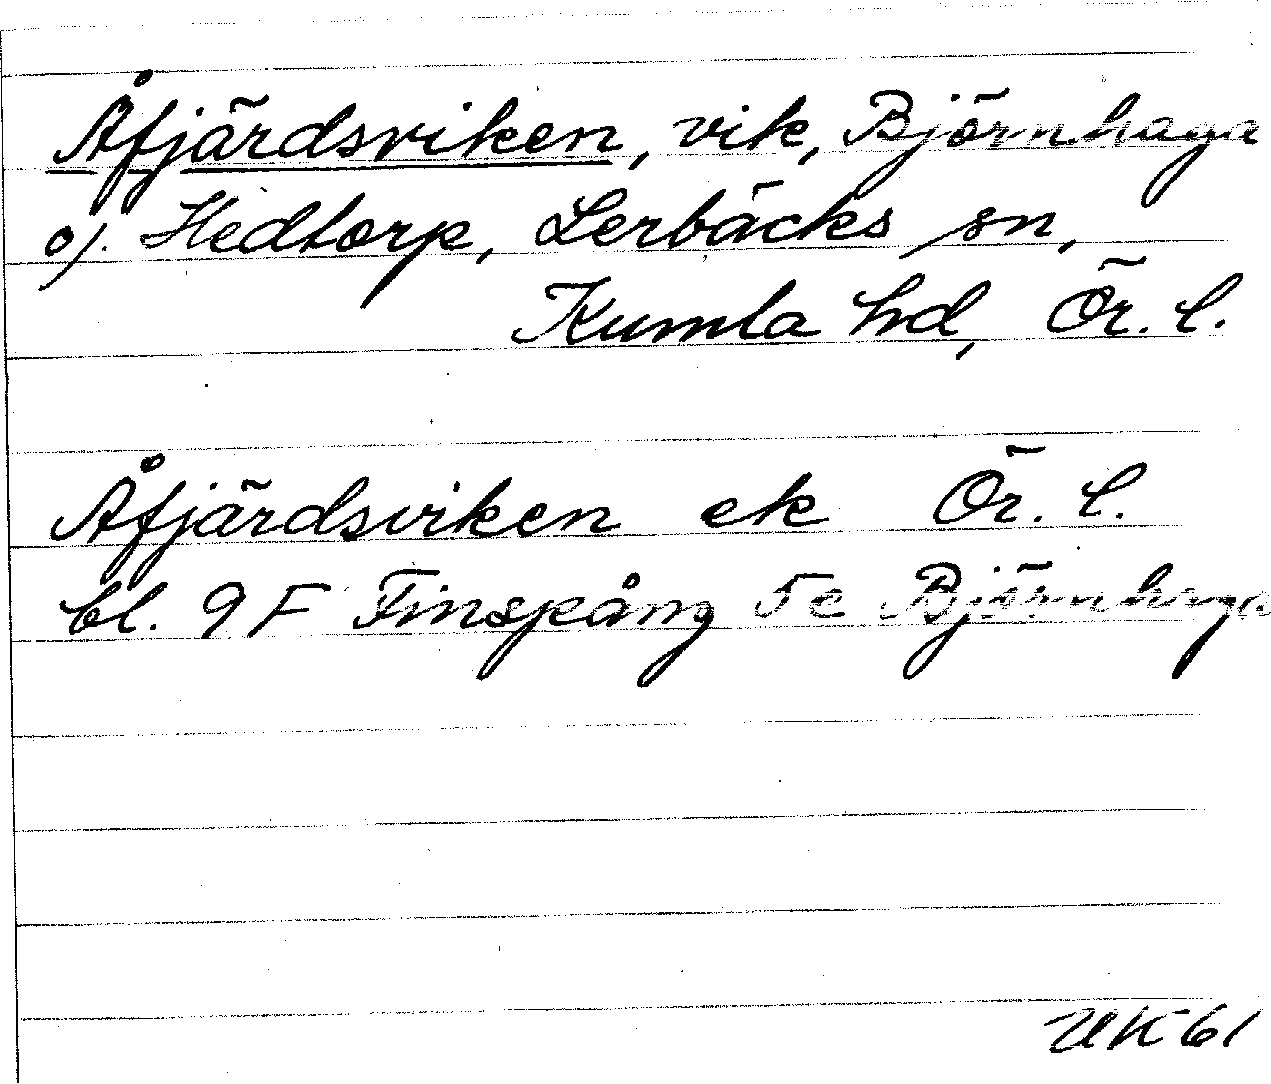 Åfjärdsviken, vik, Björnhaga
o). Hedtorp, Lerbäcks sn,
Kumla hd, Ör. l.
Åfjärdsviken ek Ör. l.
bl. 9 F Finspång 5c Björnhaga
UK 61